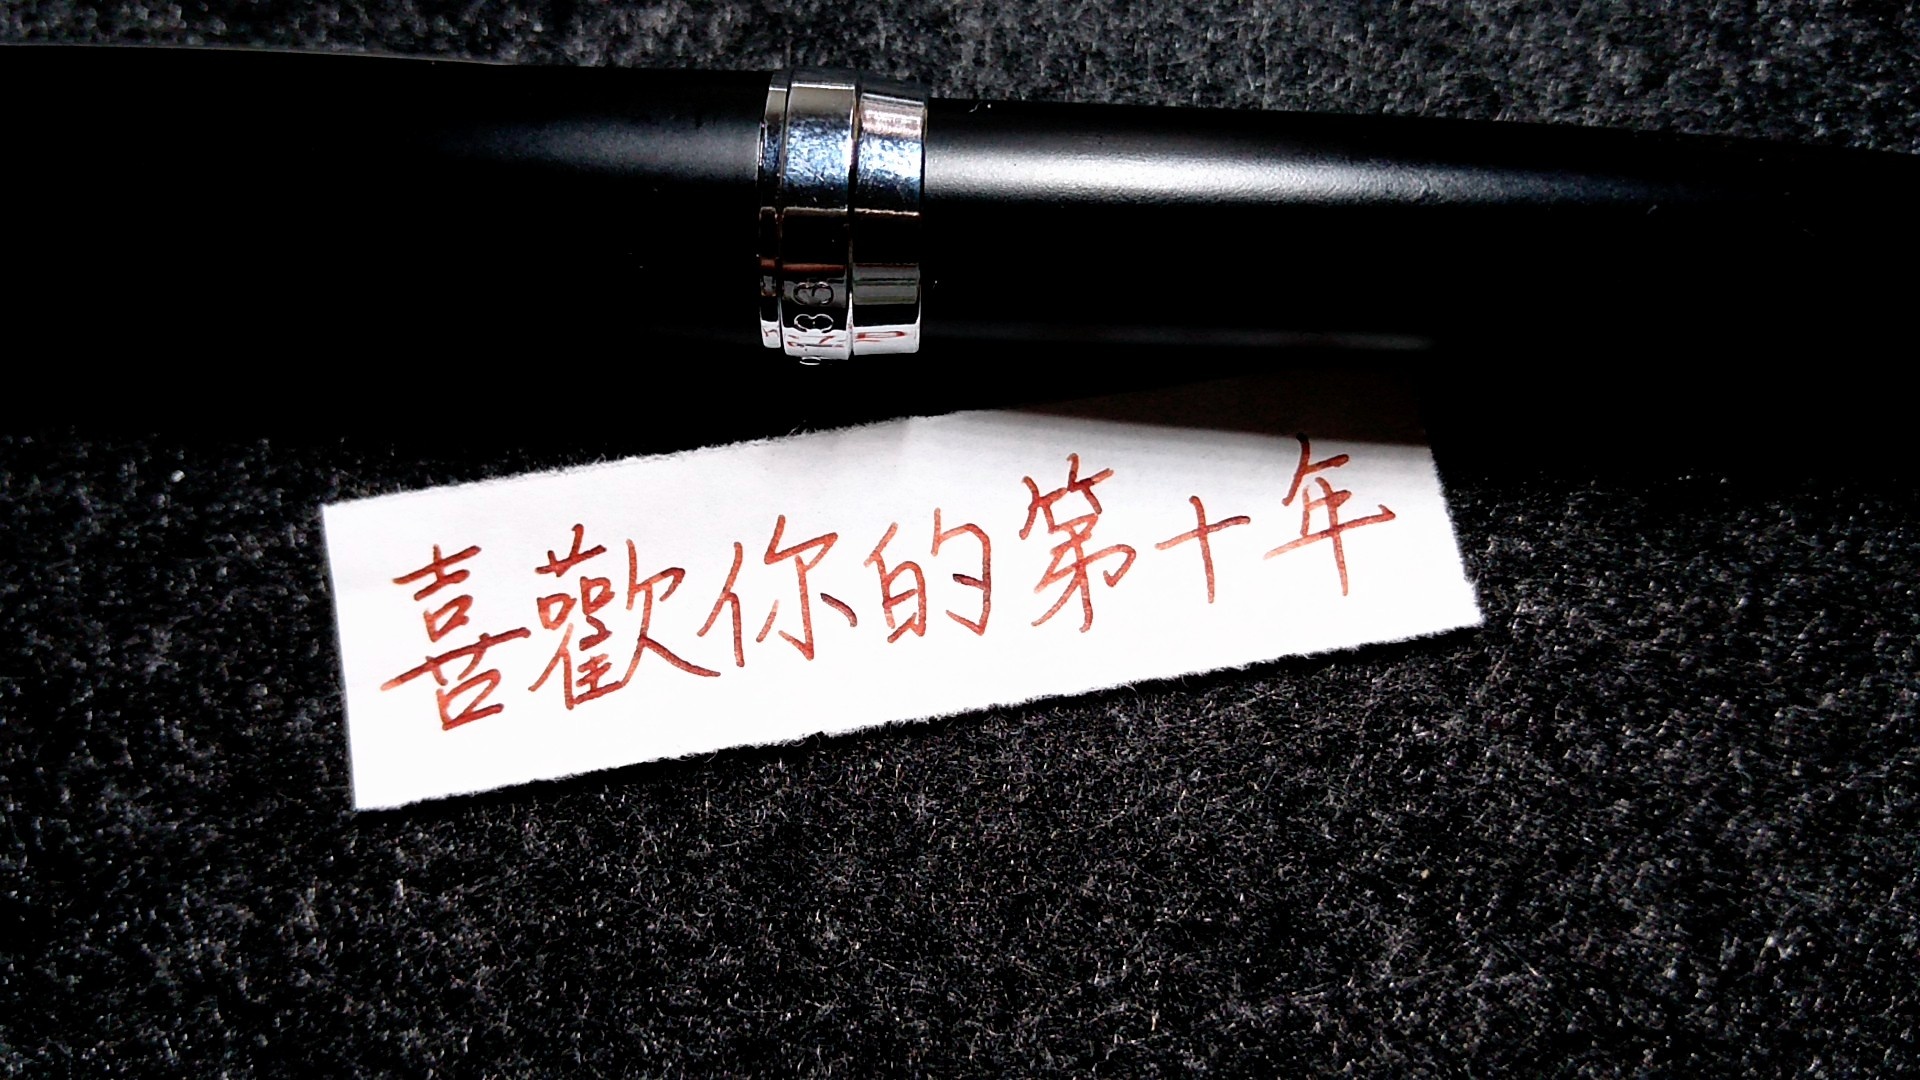 喜歡你的第十年